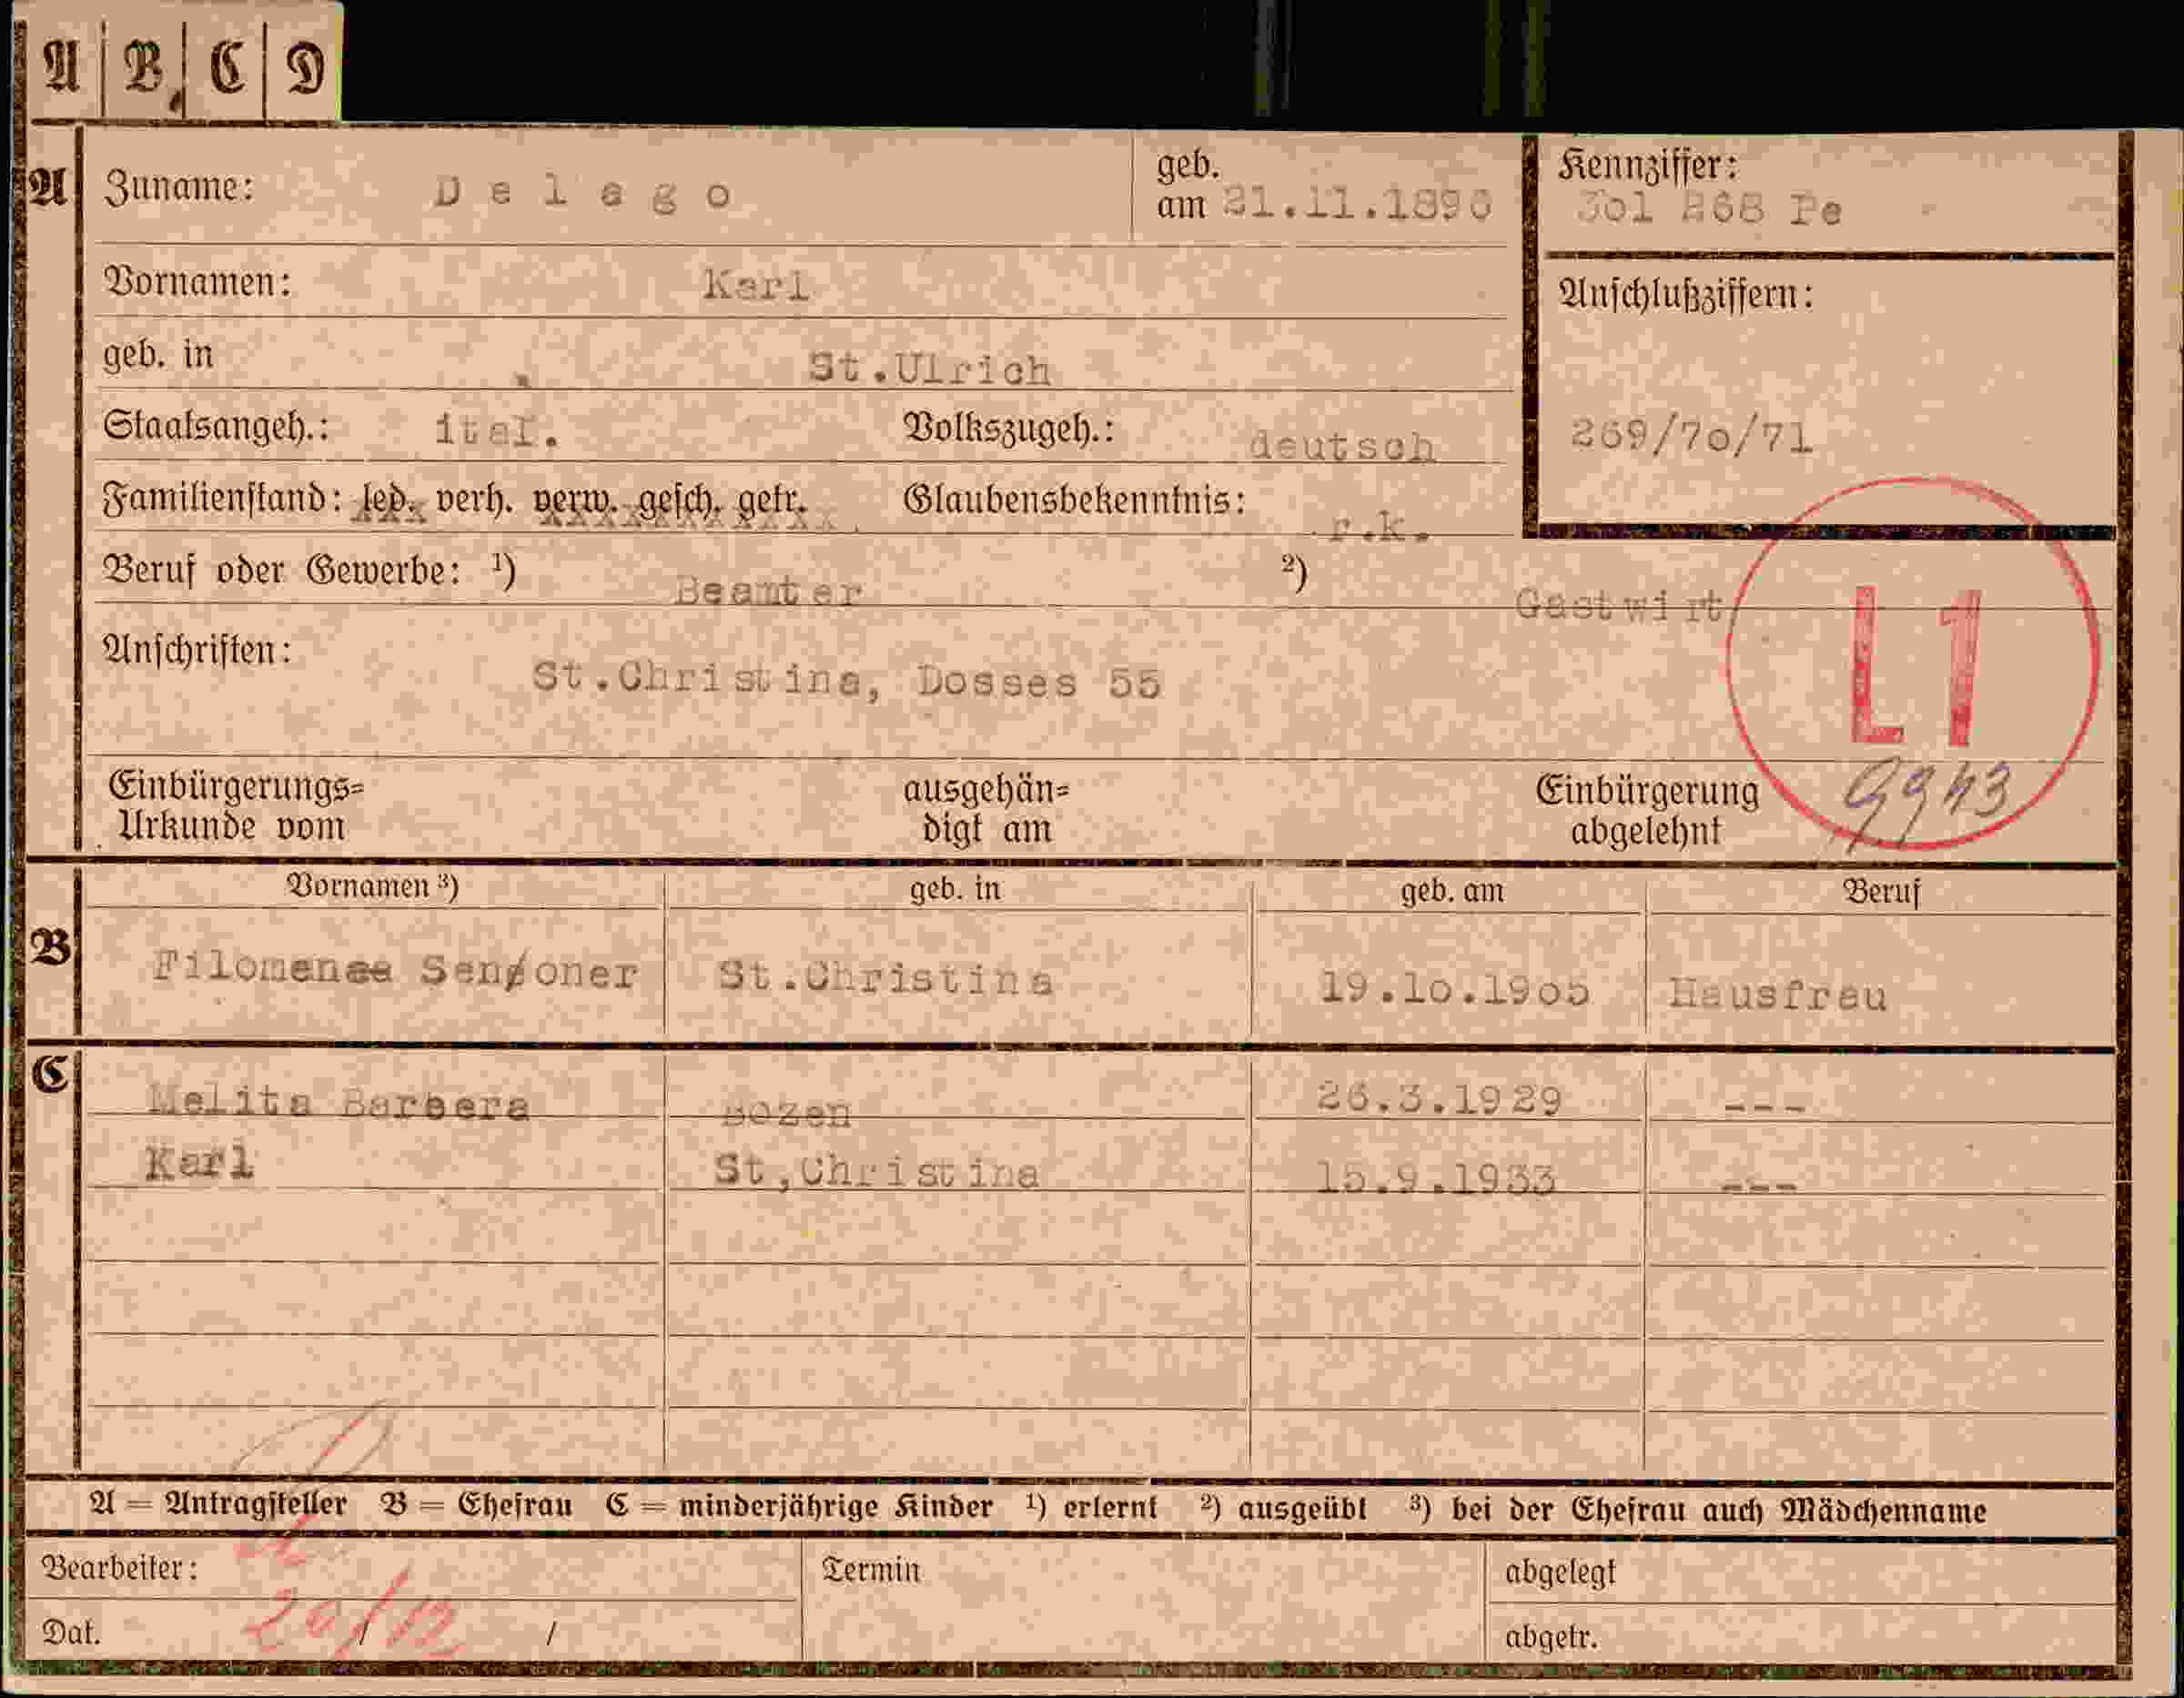 A B C D
A Zuname: Delago geb. am 21.11.1896 Kennziffer: 301 268 Pe
Vornamen: Karl Anschlußziffern:
geb. in St.Ulrich
Staatsangeh.: ital. Volkszugeh.: deutsch 269/70/71
Familienstand: led. verh. verw. gesch. getr. Glaubensbekenntnis: r.k.
Beruf oder Gewerbe: 1) Beamter 2) Gastwirt
L1
Anschriften: St.Christina, Dosses 55
Einbürgerungs= ausgehän= Einbürgerung 9943
Urkunde vom digt am abgelehnt
Vornamen 3) geb. in geb. am Beruf
B Filomena Senoner St.Christina 19.10.1905 Hausfrau
C Melita Barbera Bozen 26.3.1929 ---
Karl St,Christina 15.9.1933 ---
A = Antragsteller B = Ehefrau C = minderjährige Kinder 1) erlernt 2) ausgeübt 3) bei der Ehefrau auch Mädchenname
Bearbeiter: Termin abgelegt
Dat. 20/12 / abgetr.